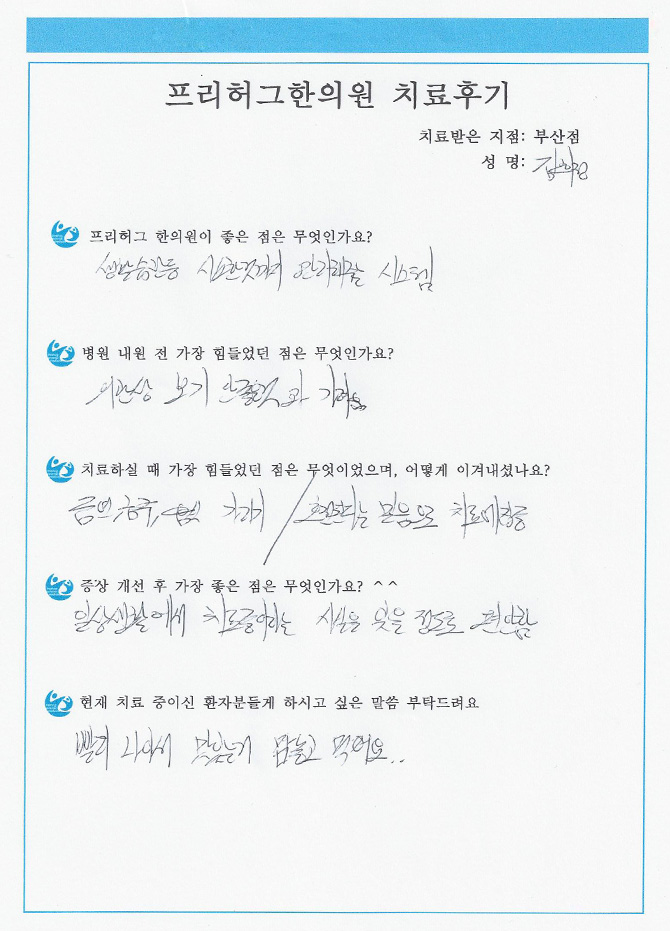 프리허그한의원 치료후기
치료받은 지점: 부산점
성 명:
프리허그 한의원이 좋은 점은 무엇인가요?
생활습관등 사소한것까지 관리해줄 시스템
병원 내원 전 가장 힘들었던 점은 무엇인가요?
외관상 보기 안좋은것과 가려움
치료하실 때 가장 힘들었던 점은 무엇이었으며, 어떻게 이겨내셨나요?
음식 / 호전된다는 믿음으로 치료에 집중
증상 개선 후 가장 좋은 점은 무엇인가요? ^^
일상생활에서 치료중이라는 사실을 잊을 정도로 편안함
현재 치료 중이신 환자분들게 하시고 싶은 말씀 부탁드려요
빨리 나아서 맛있는거 맘놓고 먹어요..